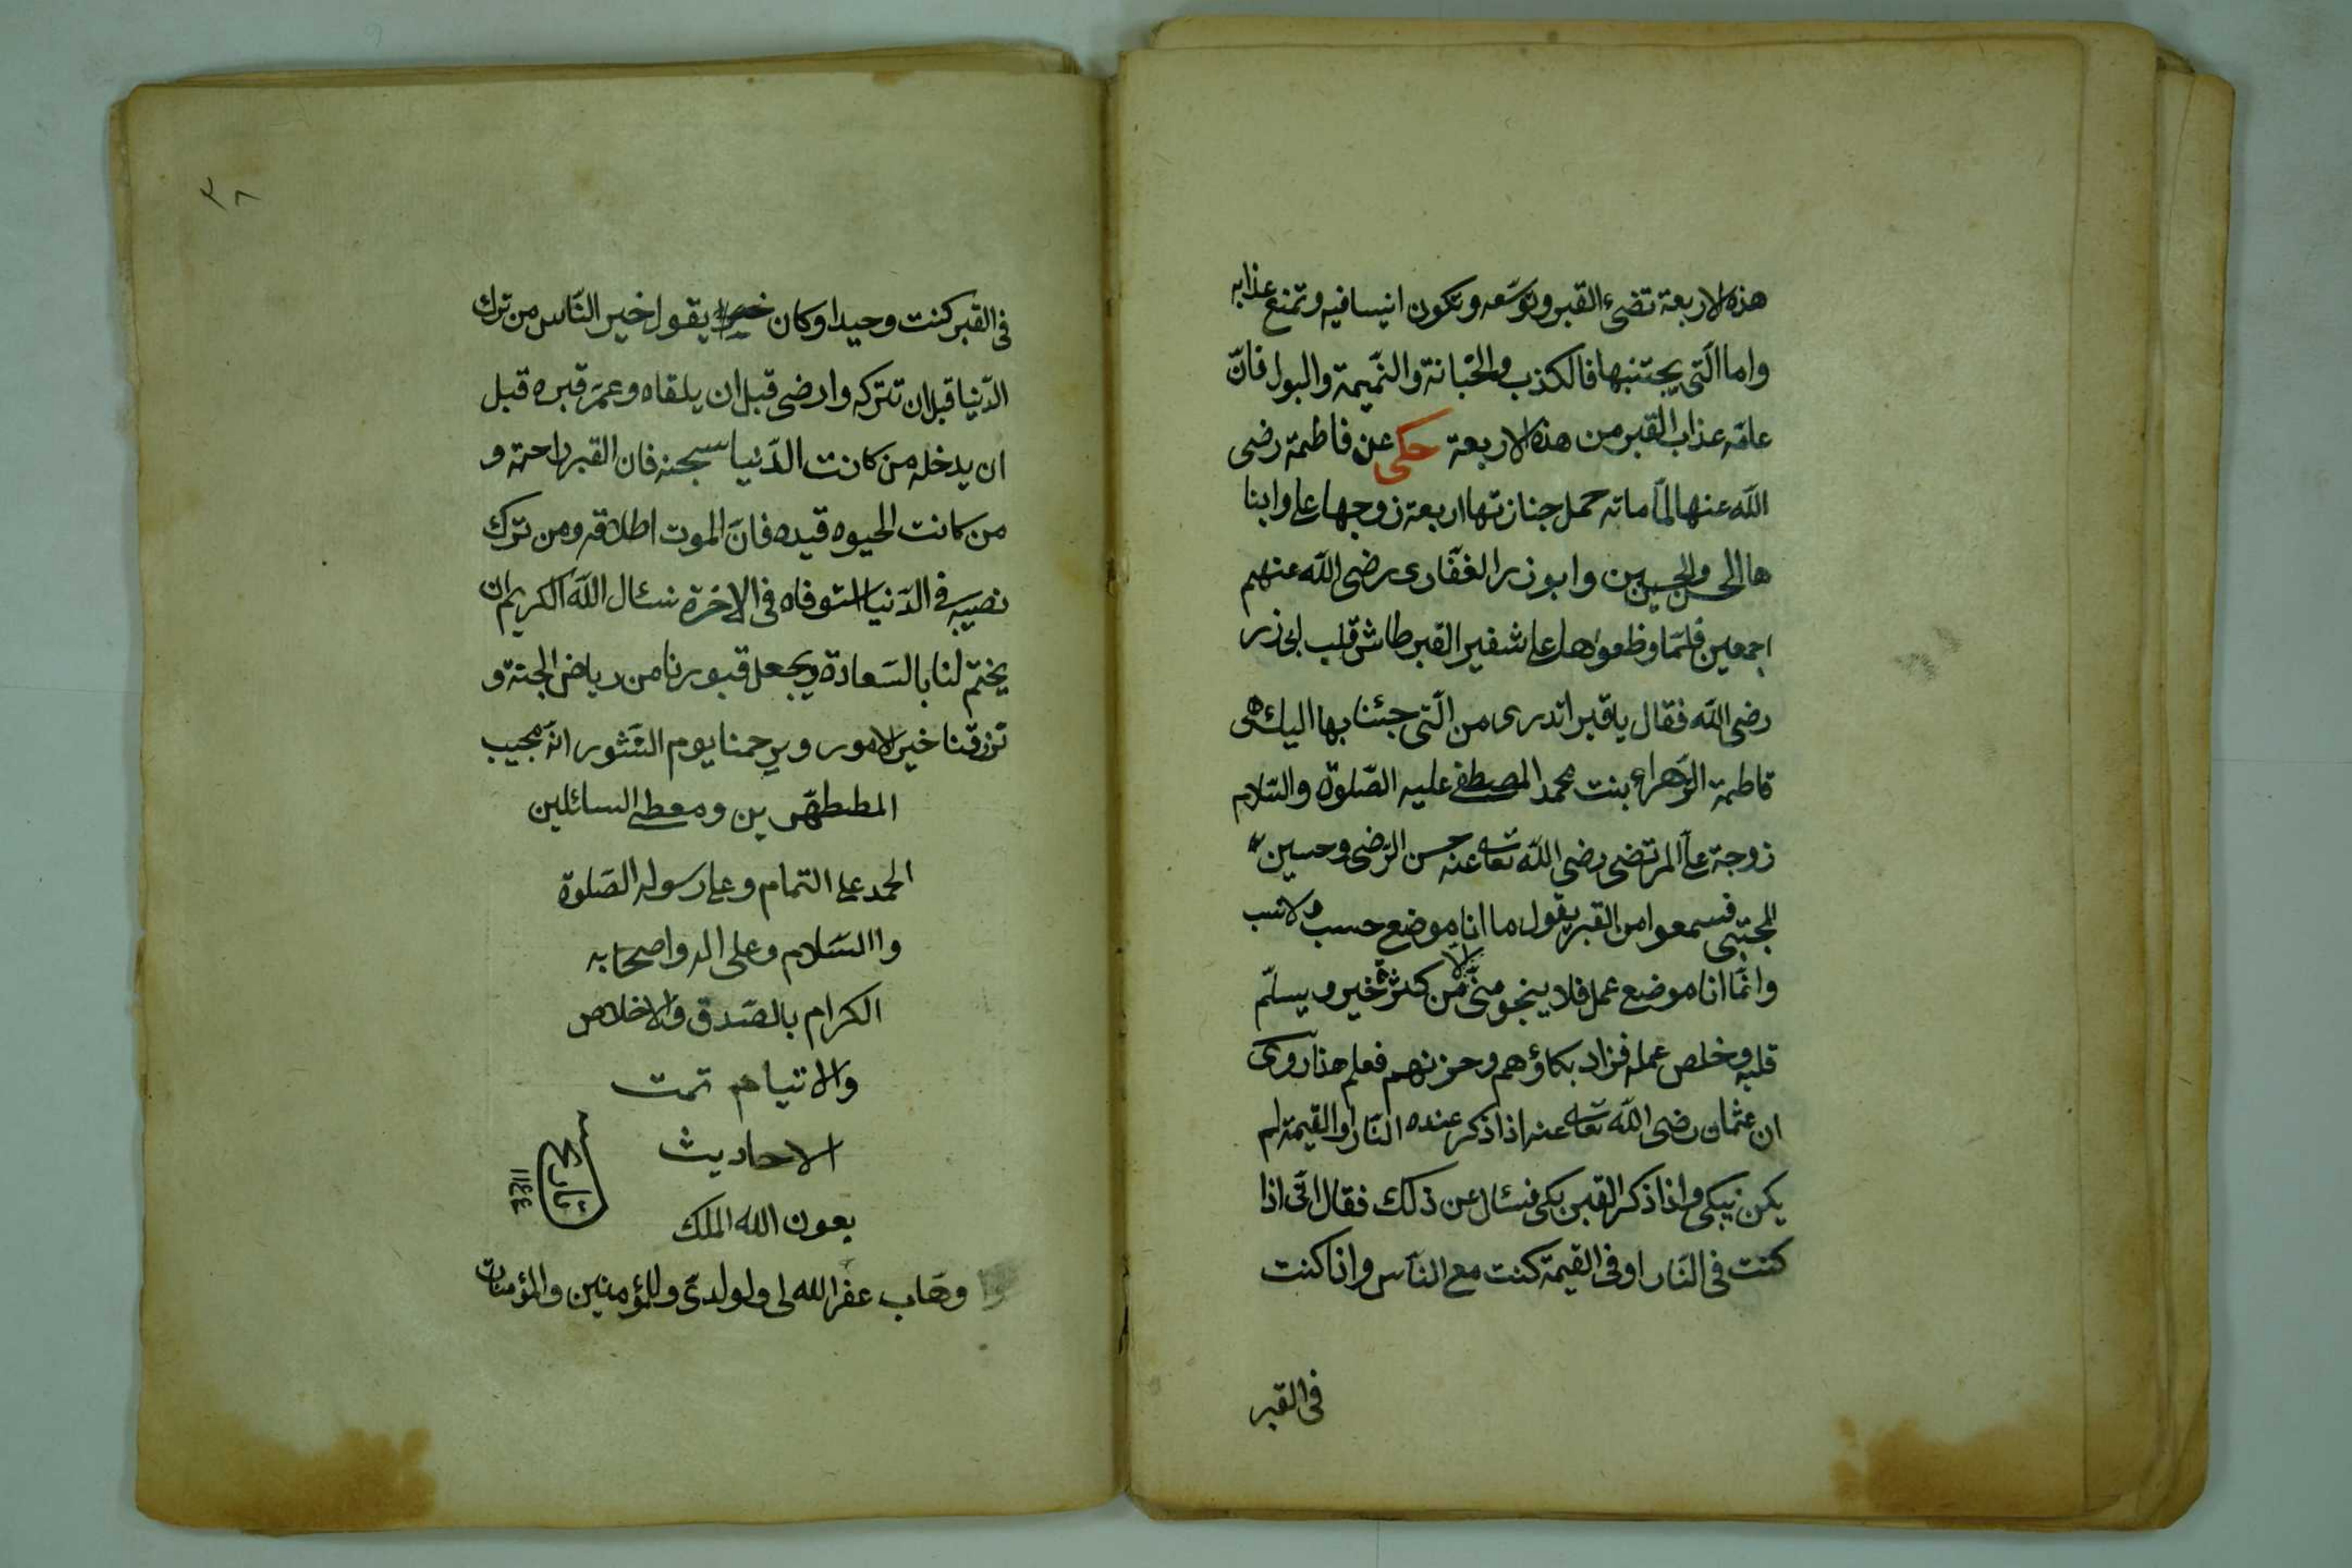 هذه الاربعة تضئ القبر وتوسّعه وتكون انيسا فيه وتمنع عذابه
واما الّتى يجتنبها فالكذب والخيانة والنّميمة والبول فانّ
عامّه عذاب القبر من هذه الاربعة حكى عن فاطمة رضى
اللّه عنها لمّا ماته حمل جنازتها اربعة زوجها على وابنا
ها الحسن والحسين وابو ذر الغفّارى رضى اللّه عنهم
اجمعين فلمّا وظعواها على شفير القبر طاش قلب ابى ذر
رضى اللّه فقال يا قبر اتدرى من الّتى جئنا بها اليك هى
فاطمة الزّهراء بنت محمد المصطفى عليه الصّلوة والسّلام
زوجة على المرتضى رضى اللّه تعالى عنه حسن الرّضى وحسين
المجتبى فسمعوا من القبر يقول ما انا موضع حسب ولا نسب
وانّما انا موضع عمل فلا ينجو منّى الا من كثرة خير ويسلّم
قلبه وخلص عمله فزاد بكاؤهم وحزنهم فعلم هذا روى
ان عثمان رضى اللّه تعالى عنه اذا ذكر عنده النّار او القيمة لم
يكن يبكى واذا ذكر القبر بكى فسئال عن ذلك فقال انّى اذا
كنت فى النّار او فى القيمة كنت مع النّاس واذا كنت
فى القبر
٣٨
فى القبر كنت وحيدا وكان يقول خير النّاس من ترك
الدّنيا قبل ان تتركه وارضى قبل ان يلقاه وعمّر قبره قبل
ان يدخله من كانت الدّنيا سجنه فان القبر راحته و
من كانت الحيوه قيده فانّ الموت اطلاقه ومن ترك
نصيبه فى الدّنيا استوفاه فى الاخرة نسئال اللّه الكريم ان
يختم لنا بالسّعادة ويجعل قبورنا من رياض الجنة و
ترزقنا خير الامور ويرحمنا يوم النّشور انّه مجيب
المطهّرين ومعطى السائلين
الحمد على التمام وعلى رسوله الصّلوة
واالسّلام وعلى اله واصحابه
الكرام بالصّدق والاخلاص
والاتيام تمت
الاحاديث
بعون الله الملك
وهّاب غفر الله لى ولولدىّ وللمؤمنين والمؤمنات
تاريخ
١١٤٤